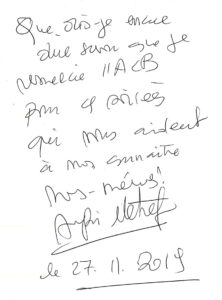 Que dois-je encore
dire sinon que je
remercie l'ACB
pour ces soirées
qui nous aident
à nous connaître
nous-mêmes!
le 27.11.2019